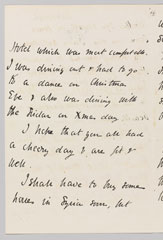 Hotel which was most comfortable.
I was dining out & had to go
to a dance on Christmas
Eve & also was dining with
the on Xmas day.
I hope that you all had
a cheery day & are fit &
well.
I shall have to buy some
horses in Syria soon, but